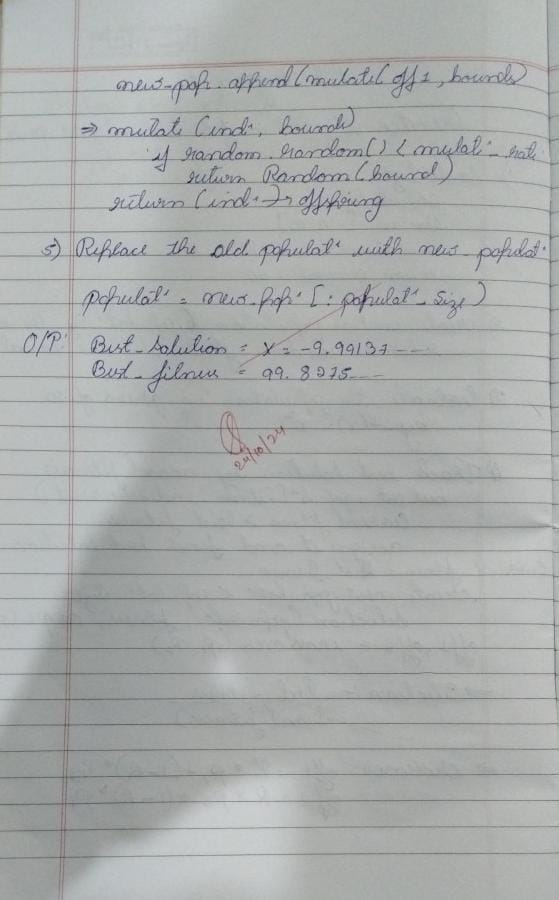 new-pop. append(mutate( off1, bounds)
=> mutatⁿ (indⁿ, bounds)
if random.random() < mutatⁿ-rate
return Random(bound)
return (indⁿ) -> offspring
5) Replace the old populatⁿ with new-populatⁿ
populatⁿ = new-popⁿ [: populatⁿ-size)
O/P: Best-solution = x = -9.99137---
Best-fitness = 99.8275---
24/10/24